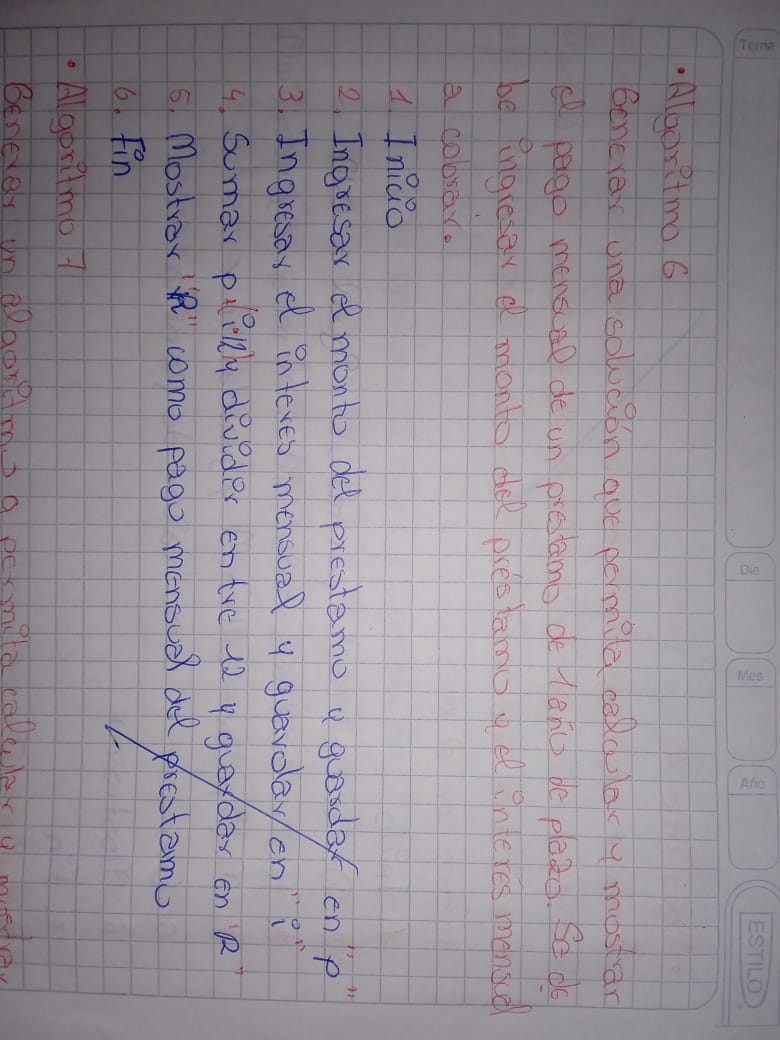 Tema
Dia
Mes
Año
ESTILO
• Algoritmo 6
Generar una solución que permita calcular y mostrar
el pago mensual de un prestamo de 1 año de plazo. Se de
be ingresar el monto del préstamo y el interés mensual
a cobrar.
1. Inicio
2. Ingresar el monto del prestamo y guardar en "p"
3. Ingresar el interes mensual y guardar en "i"
4. Sumar p+(i·12) y dividir entre 12 y guardar en "R"
5. Mostrar "R" como pago mensual del prestamo
6. Fin
• Algoritmo 7
Generar un algoritmo a permita calcular y mostrar